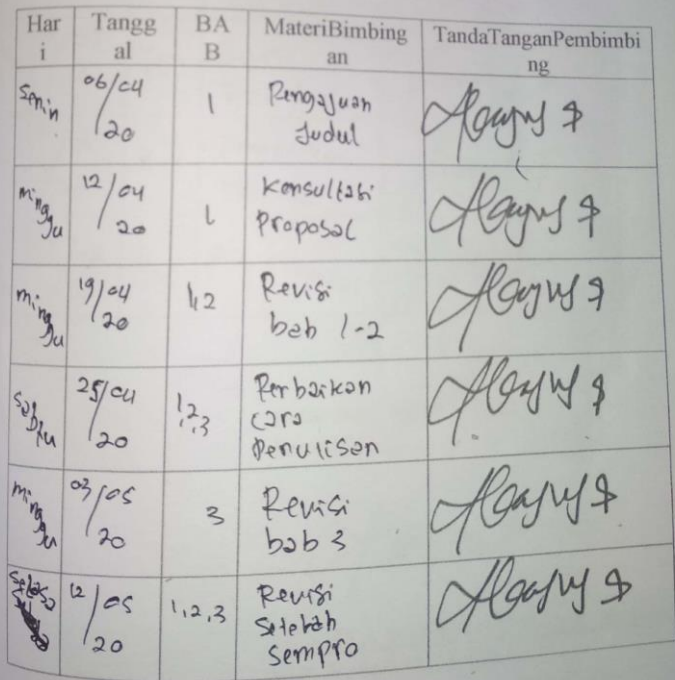 Har
i
Tangg
al
BA
B
MateriBimbing
an
TandaTanganPembimbi
ng
Senin
06/04
/20
1
Pengajuan
Judul
minggu
12/04
20
1
Konsultasi
Proposal
minggu
19/04
/20
1,2
Revisi
bab 1-2
sabtu
25/04
/20
1,2,3
Perbaikan
cara
penulisan
minggu
03/05
/20
3
Revisi
bab 3
selasa
12/05
/20
1,2,3
Revisi
setelah
sempro